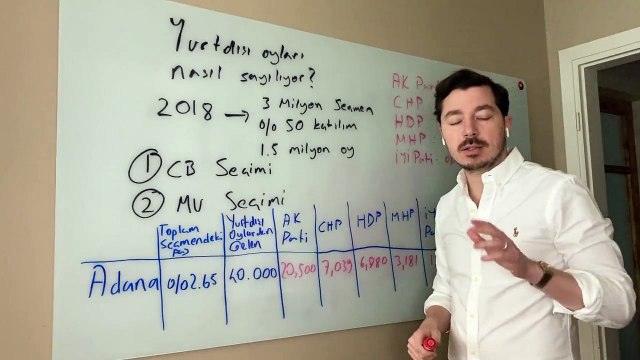 Yurtdışı oyları
nasıl sayılıyor?
2018 → 3 Milyon Seçmen
0/0 50 katılım
1.5 milyon oy
① CB Seçimi
② MV Seçimi
AK Parti
CHP
HDP
MHP
İYİ Parti
Toplam Seçmendeki Pay
Yurtdışı Oylardan Gelen
AK Parti
CHP
HDP
MHP
Adana 0/0 2.65 40.000 20,500 7,039 6,880 3,181